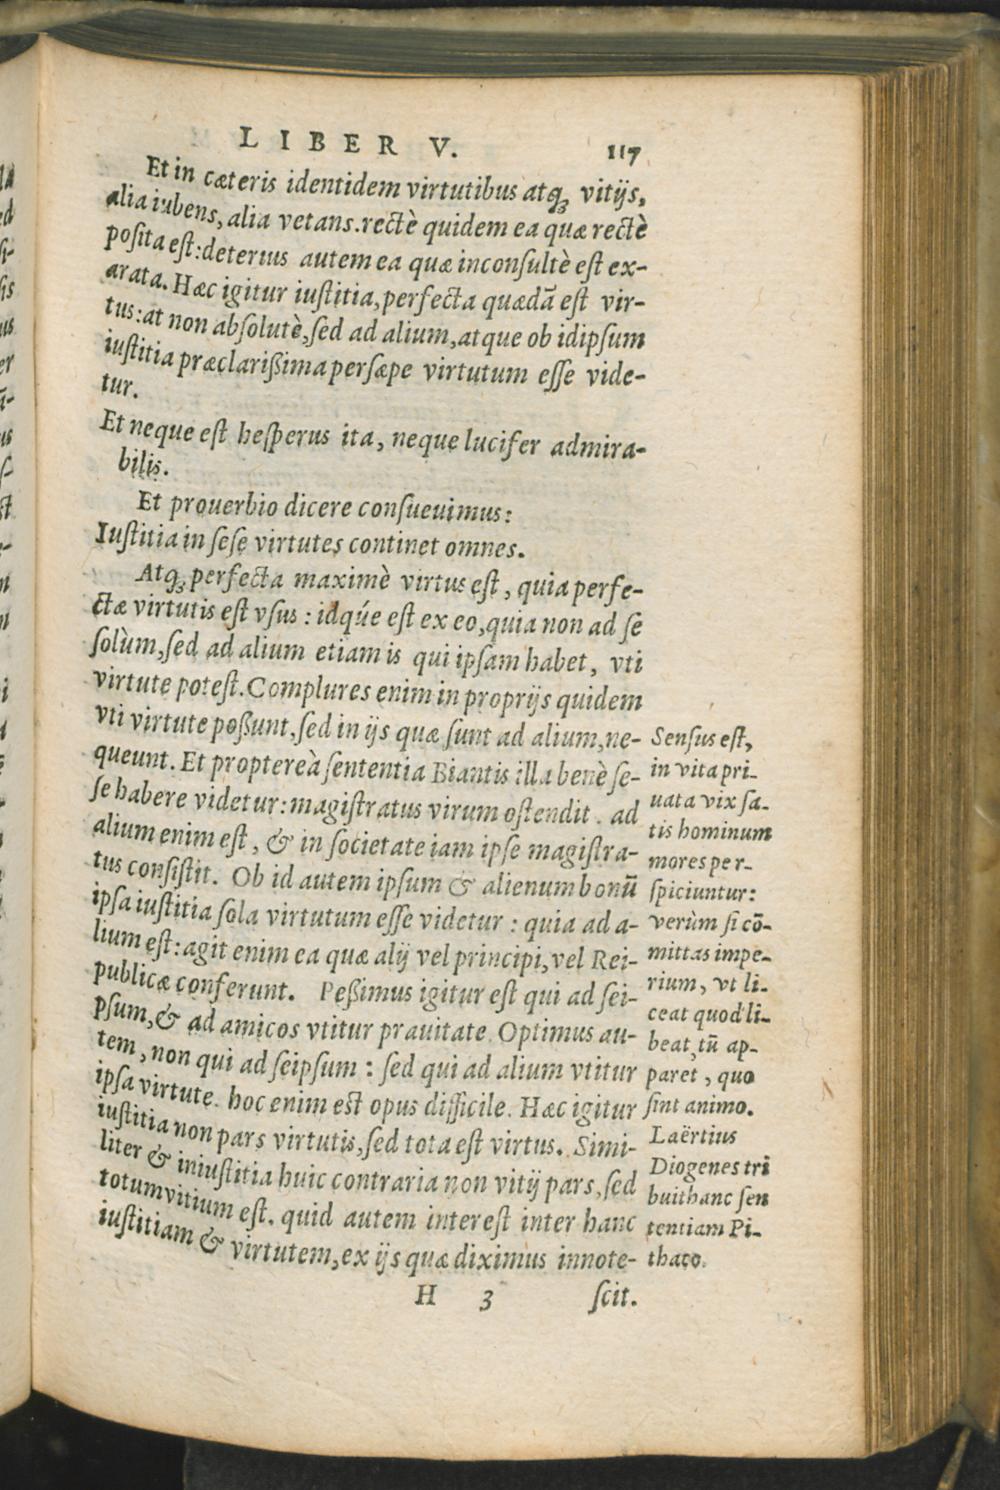 LIBER V. 117
Et in cæteris identidem virtutibus atq; vitijs,
alia iubens, alia vetans. rectè quidem ea quæ rectè
posita est: deterius autem ea quæ inconsultè est ex-
arata. Hæc igitur iustitia, perfecta quædã est vir-
tus: at non absolutè, sed ad alium, atque ob idipsum
iustitia præclarißima persæpe virtutum esse vide-
tur.
Et neque est hesperus ita, neque lucifer admira-
bilis.
Et prouerbio dicere consueuimus:
Iustitia in sese virtutes continet omnes.
Atq; perfecta maximè virtus est, quia perfe-
ctæ virtutis est vsus: idq́ue est ex eo, quia non ad se
solùm, sed ad alium etiam is qui ipsam habet, vti
virtute potest. Complures enim in proprijs quidem
vti virtute poßunt, sed in ijs quæ sunt ad alium, ne-
queunt. Et proptereà sententia Biantis illa benè se-
se habere videtur: magistratus virum ostendit. ad
alium enim est, & in societate iam ipse magistra-
tus consistit. Ob id autem ipsum & alienum bonũ
ipsa iustitia sola virtutum esse videtur: quia ad a-
lium est: agit enim ea quæ alij vel principi, vel Rei-
publicæ conferunt. Peßimus igitur est qui ad sei-
psum, & ad amicos vtitur prauitate. Optimus au-
tem, non qui ad seipsum: sed qui ad alium vtitur
ipsa virtute. hoc enim est opus difficile. Hæc igitur
iustitia non pars virtutis, sed tota est virtus. Simi-
liter & iniustitia huic contraria non vitij pars, sed
totum vitium est. quid autem interest inter hanc
iustitiam & virtutem, ex ijs quæ diximus innote-
H 3 scit.
Sensus est,
in vita pri-
uata vix sa-
tis hominum
mores per-
spiciuntur:
verùm si cõ-
mittas impe-
rium, vt li-
ceat quod li-
beat, tũ ap-
paret, quo
sint animo.
Laërtius
Diogenes tri
buit hanc sen
tentiam Pi-
thaco.